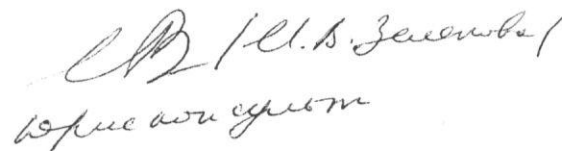 /И.В. Зеленова/
юрисконсульт